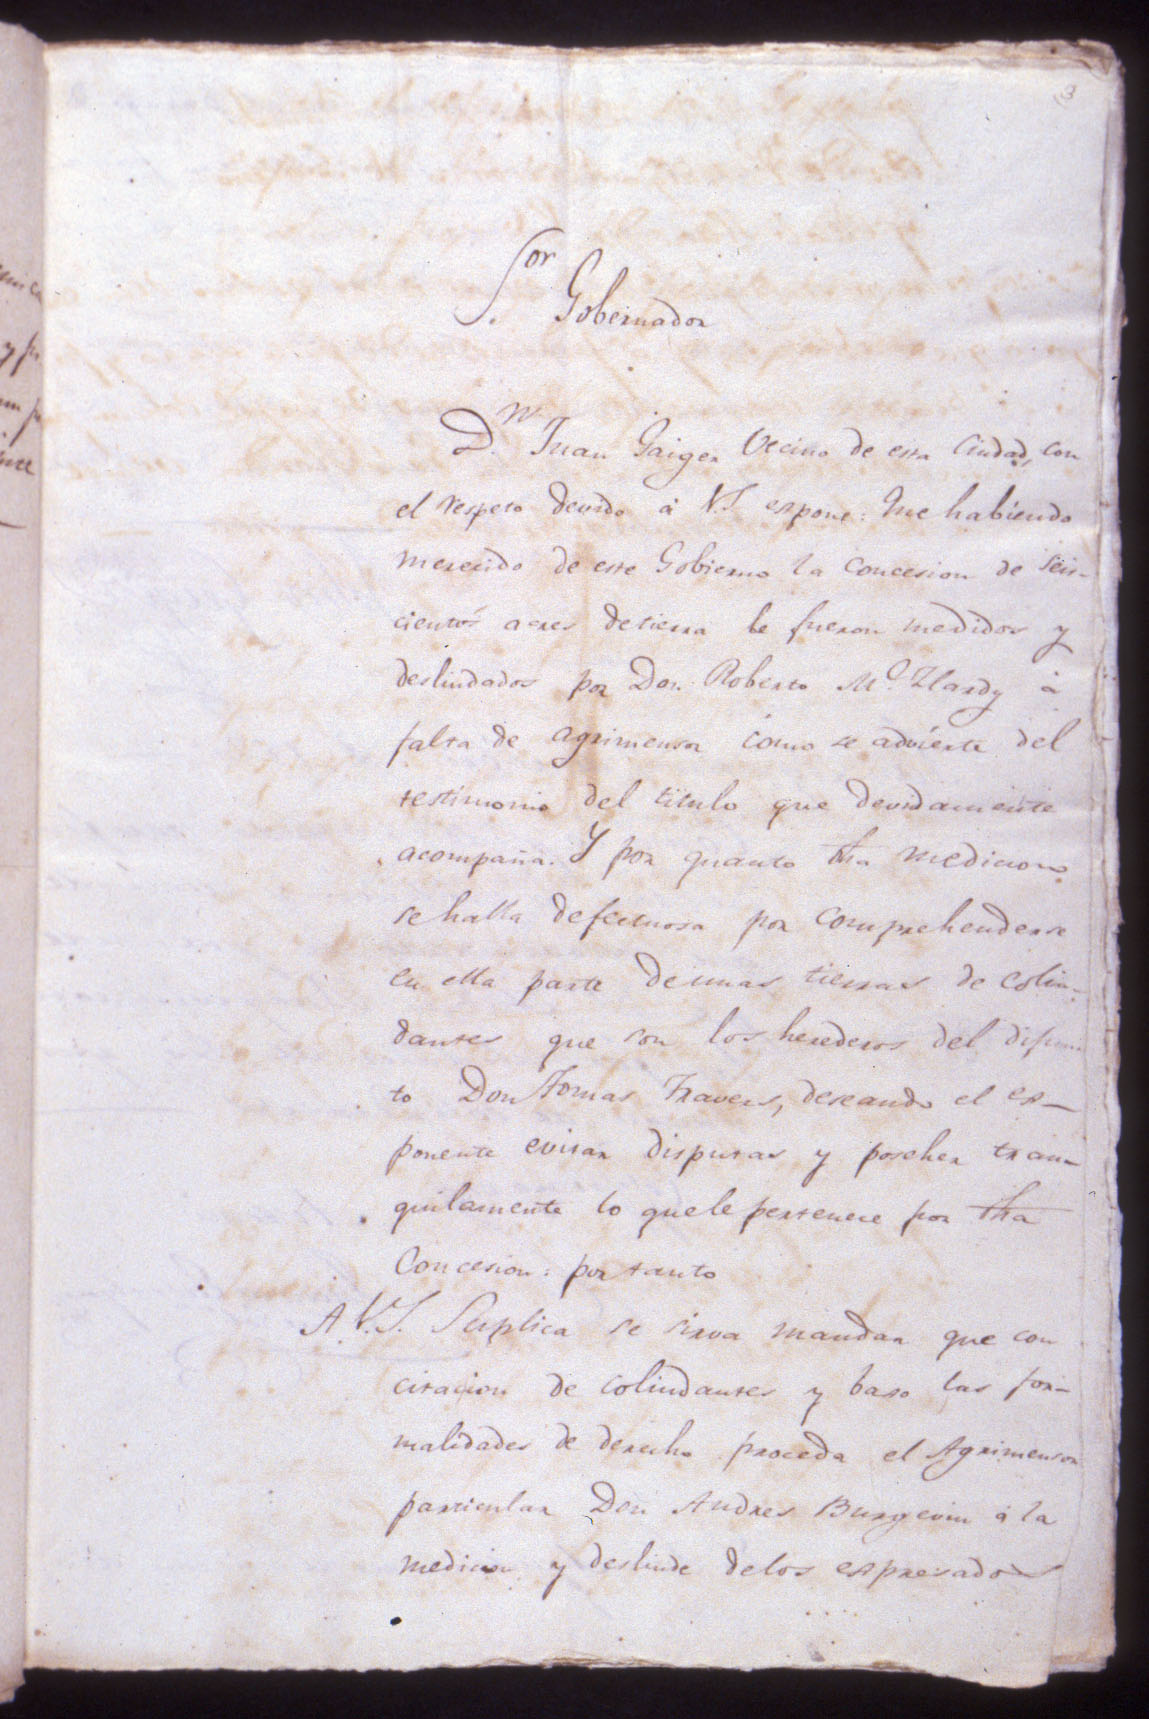 3
Sor. Gobernador
Dn. Juan Gaiger Vecino de esta Ciudad, con
el respeto devido á V.S. expone: Que habiendo
merecido de este Gobierno la concesion de Seis-
cientos acres de tierra le fueron medidos y
deslindados por Don Roberto Mc. Hardy á
falta de agrimensor como se advierte del
testimonio del titulo que devidamente
acompaña. Y por quanto dha medicion
se halla defectuosa por comprehenderse
en ella parte de unas tierras de colin-
dantes que son los herederos del difun-
to Don Tomas Travers, deseando el es-
ponente evitar disputas y poseher tran-
quilamente lo que le pertenece por dha
Concesion: por tanto
A V.S. Suplica se sirva mandar que con
citacion de colindantes y baxo las for-
malidades de derecho proceda el Agrimensor
particular Don Andres Burgevin á la
medicion y deslinde de los espresados